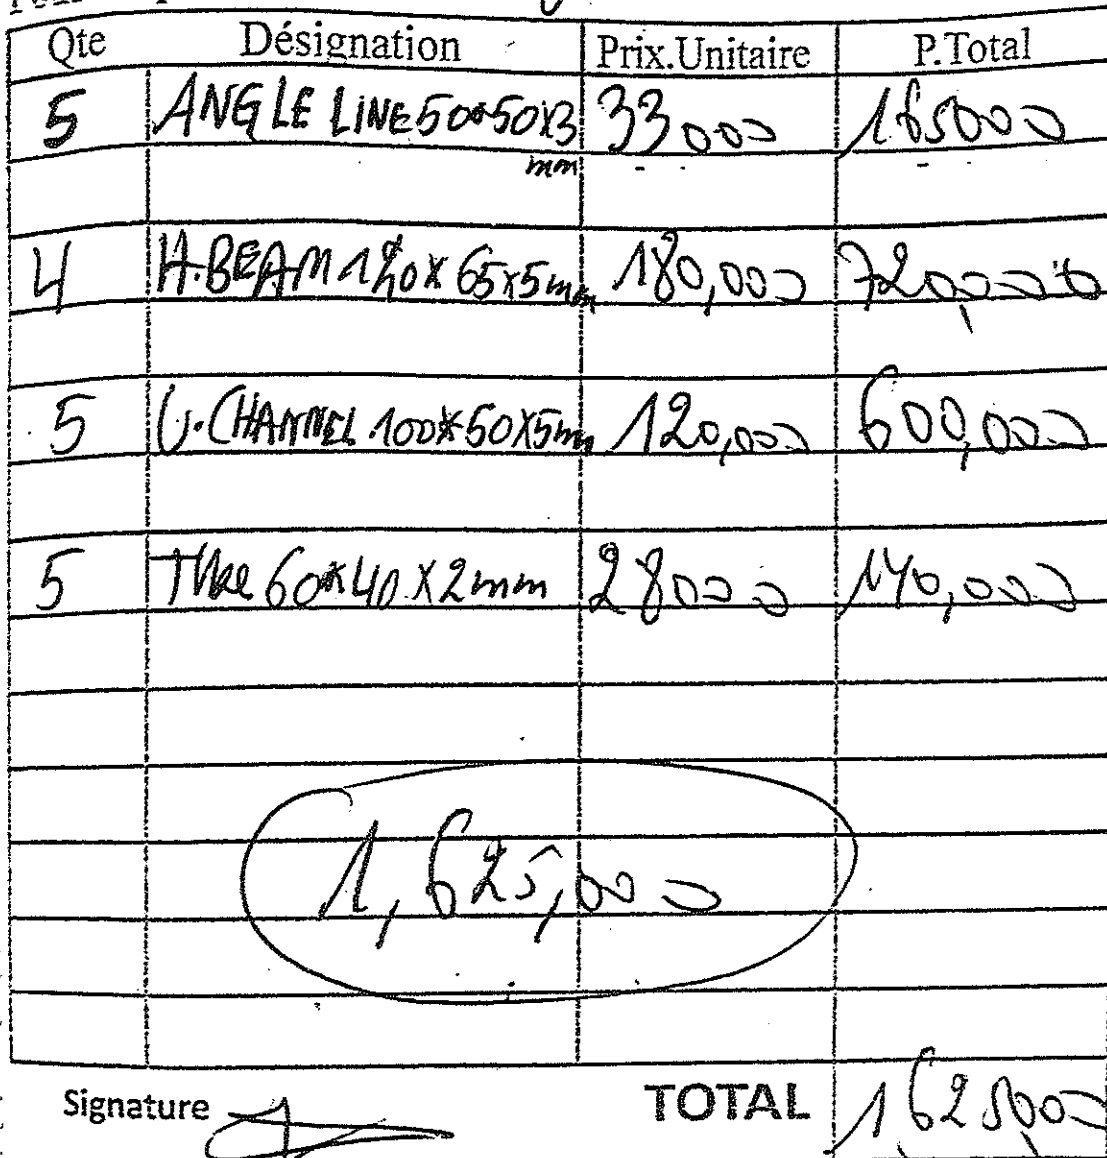 Qte Désignation Prix.Unitaire P.Total
5 ANGLE LINE 50*50x3 mm 33000 165000
4 H.BEAM 120x65x5mm 180,000 720,000
5 U.CHANNEL 100*50x5mm 120,000 600,000
5 Tube 60*40x2mm 28000 140,000
1,625,000
Signature TOTAL 1625000